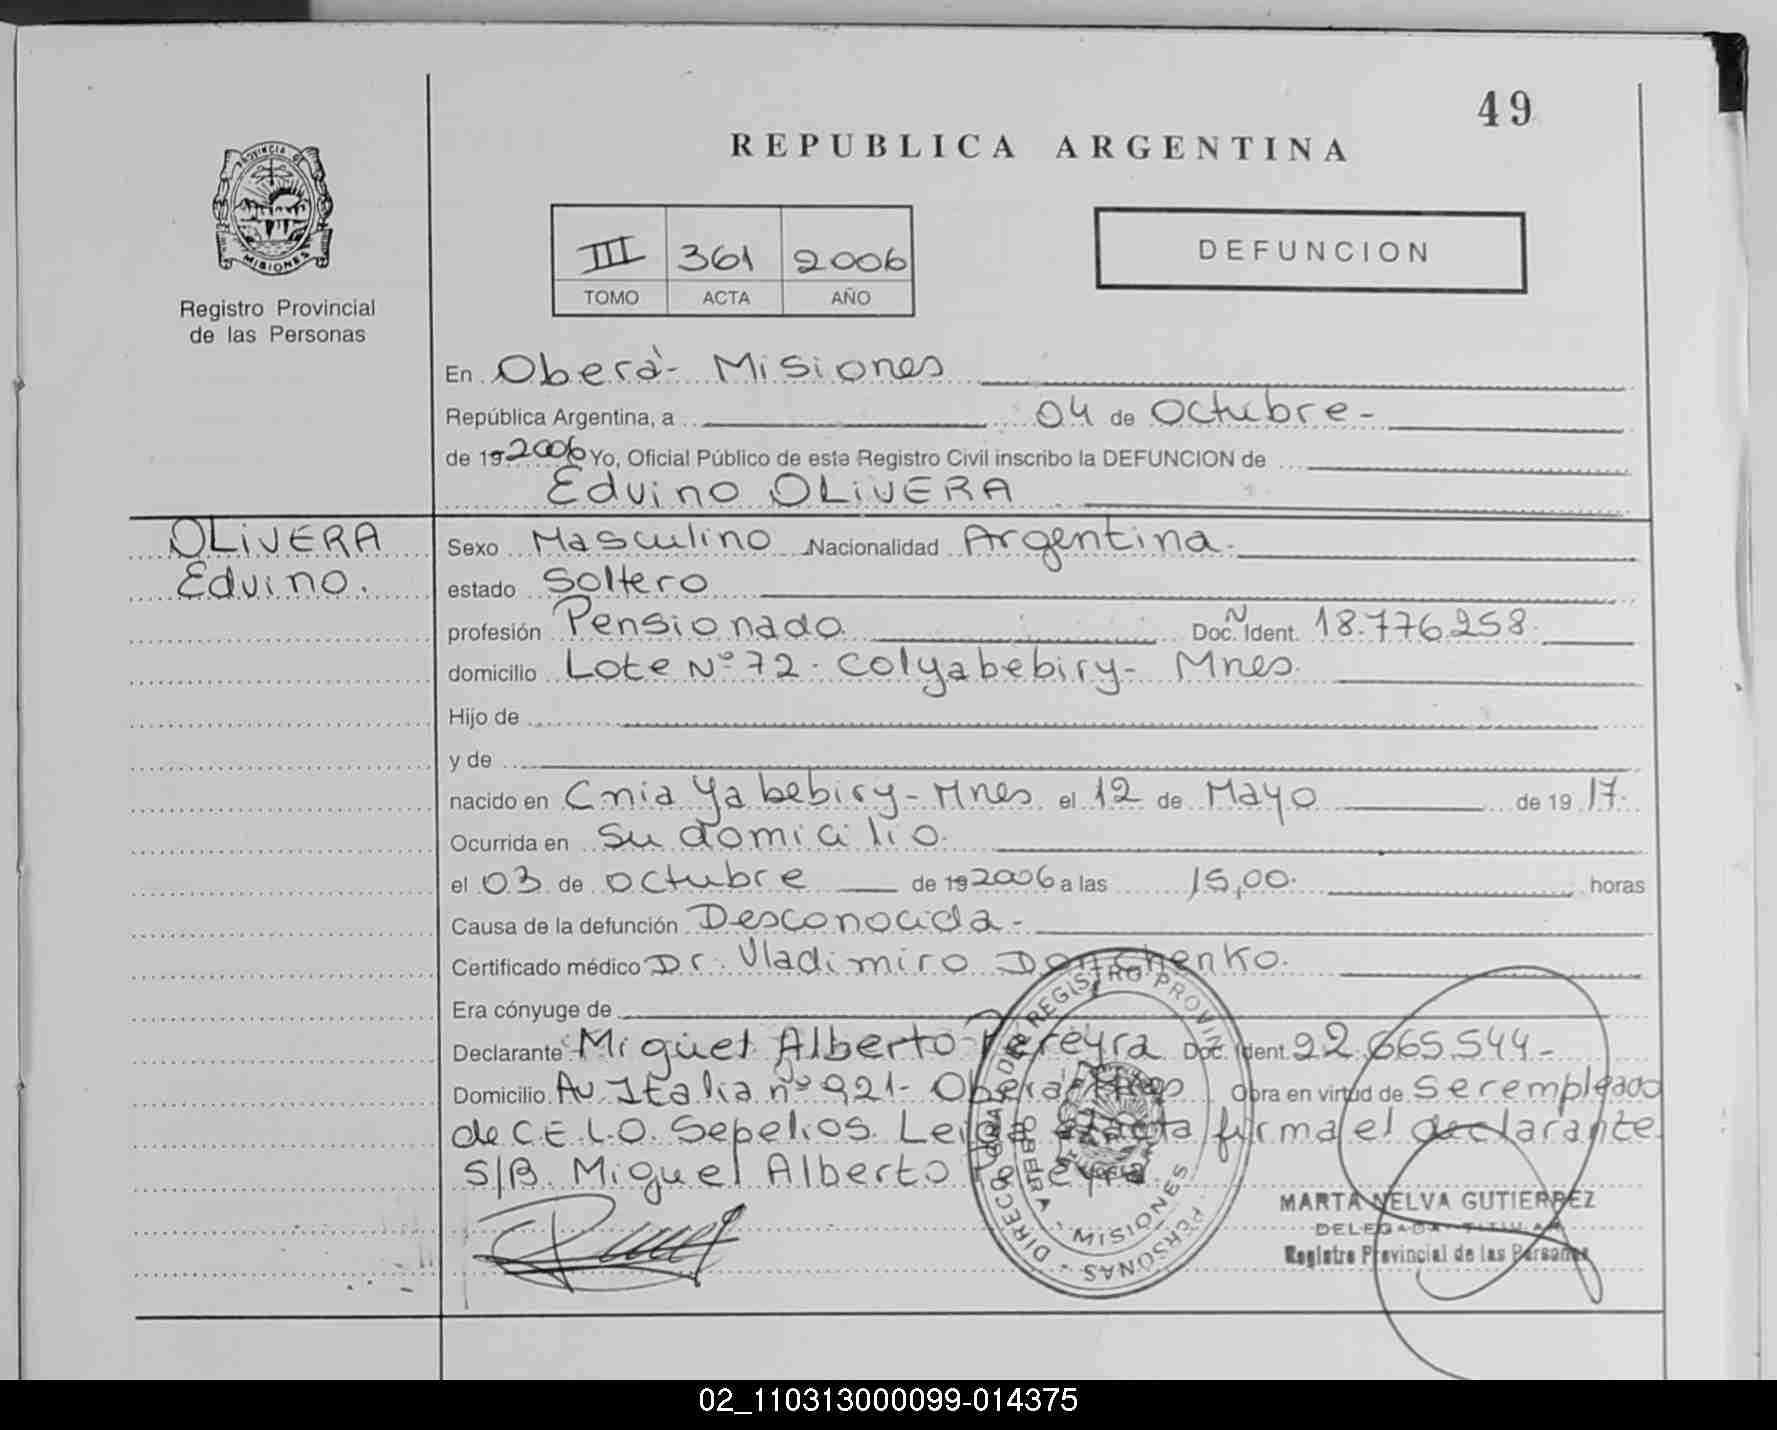 49
REPUBLICA ARGENTINA
PROVINCIA DE
MISIONES
Registro Provincial
de las Personas
III 361 2006
TOMO ACTA AÑO
DEFUNCION
En Oberá - Misiones
República Argentina, a 04 de Octubre -
de 19 2006 Yo, Oficial Público de este Registro Civil inscribo la DEFUNCION de
Edvino OLIVERA
OLIVERA
Edvino.
Sexo Masculino Nacionalidad Argentina.
estado Soltero
profesión Pensionado Doc. N Ident. 18.776.258.
domicilio Lote Nº 72. Colyabebiry - Mnes.
Hijo de
y de
nacido en Cnia Yabebiry - Mnes el 12 de Mayo de 19 17.
Ocurrida en su domicilio.
el 03 de octubre de 19 2006 a las 15,00. horas
Causa de la defunción Desconocida -
Certificado médico Dr. Vladimiro Donchenko.
Era cónyuge de
Declarante Miguel Alberto Pereyra Doc. Ident. 22.665.544 -
Domicilio Av Italia nº 921 - Obera Mnes Obra en virtud de ser empleado
de C.E.L.O. Sepelios. Leida el acta firma el declarante
S/B. Miguel Alberto Pereyra.
DIRECCION GRAL. DEL REGISTRO PROVINCIAL DE LAS PERSONAS - OBERA - MISIONES
MARTA NELVA GUTIERREZ
DELEGADA TITULAR
Registro Provincial de las Personas
02_110313000099-014375